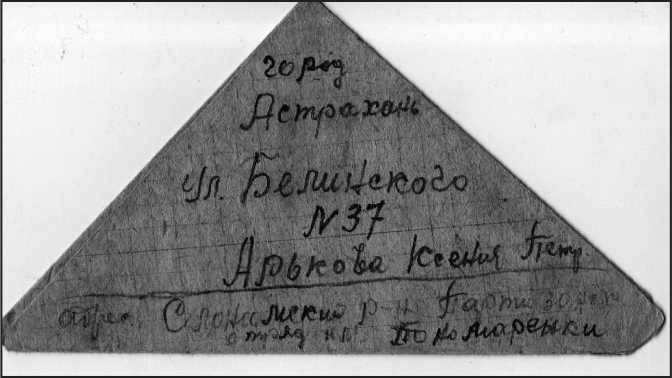 город
Астрахань
ул. Белинского
N 37
Арькова Ксения Петр.
адрес Слонимский р-н Партизанск
отряд им. Пономаренки